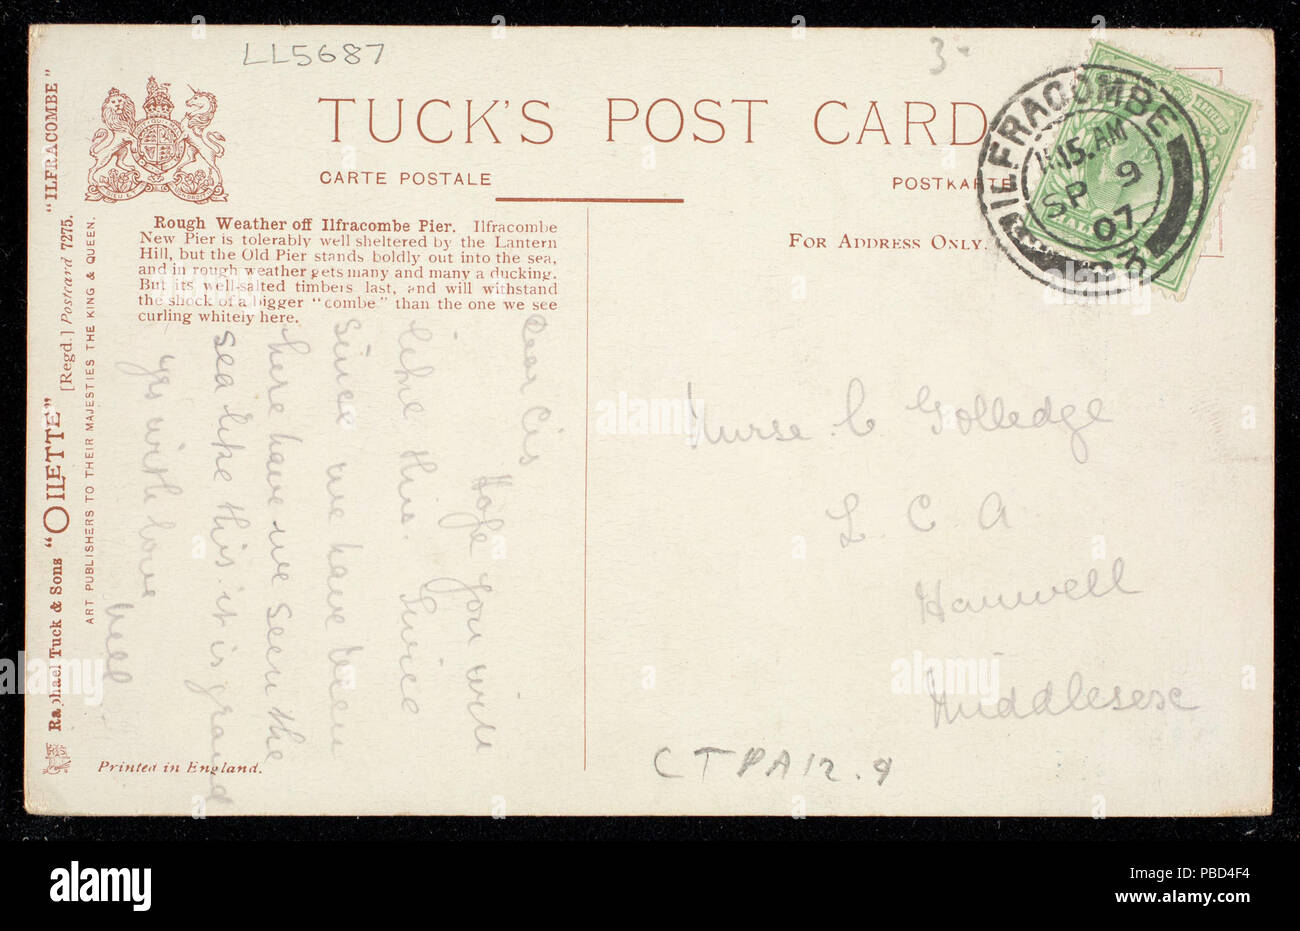 LL5687
3-
TUCK'S POST CARD
CARTE POSTALE
POSTKARTE
FOR ADDRESS ONLY.
ILFRACOMBE
11.15. AM
SP 9
07
Rough Weather off Ilfracombe Pier. Ilfracombe
New Pier is tolerably well sheltered by the Lantern
Hill, but the Old Pier stands boldly out into the sea,
and in rough weather gets many and many a ducking.
But its well-salted timbers last, and will withstand
the shock of a bigger "combe" than the one we see
curling whitely here.
"ILFRACOMBE"
[Regd.] Postcard 7275.
Raphael Tuck & Sons "OILETTE"
ART PUBLISHERS TO THEIR MAJESTIES THE KING & QUEEN.
Printed in England.
Dear Cis
Hope you will
like this. Twice
since we have been
here have we seen the
sea like this it is grand
yrs with love
Nell
Nurse. C Golledge
L C A
Hanwell
Middlesex
CTPA12.9
alamy
Image ID: PBD4F4
www.alamy.com